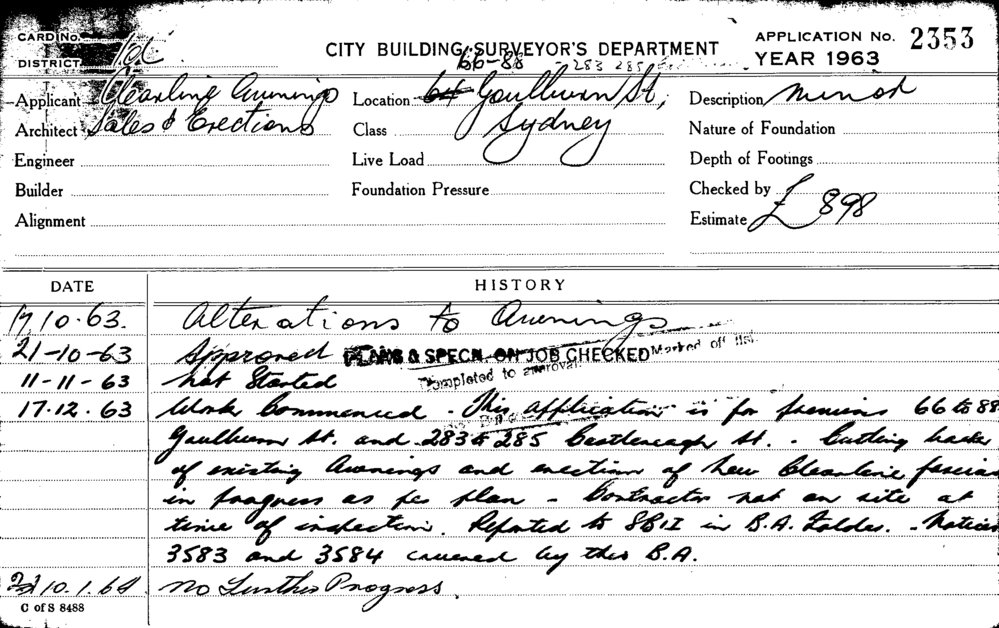 CARD No.
CITY BUILDING SURVEYOR'S DEPARTMENT
APPLICATION No. 2353
DISTRICT
66-88 283 285
YEAR 1963
Applicant Clearline Awnings
Location 64 Goulburn St,
Description Minor
Architect Sales & Erections
Class Sydney
Nature of Foundation
Engineer
Live Load
Depth of Footings
Builder
Foundation Pressure
Checked by
Alignment
Estimate £898
DATE HISTORY
17.10.63. Alterations to Awnings
21-10-63 Approved PLANS & SPECN. ON JOB CHECKED Marked off list.
11-11-63 Not Started Completed to approval
17.12.63 Work Commenced - This application is for premises 66 to 88
Goulburn St. and 283 to 285 Castlereagh St. - Cutting back
of existing Awnings and erection of new Clearline fascias
in progress as per plan - Contractor not on site at
time of inspection. Reported to SBI in B.A. Folder. - Notices
3583 and 3584 covered by this B.A.
10.1.64 No Further Progress.
C of S 8488